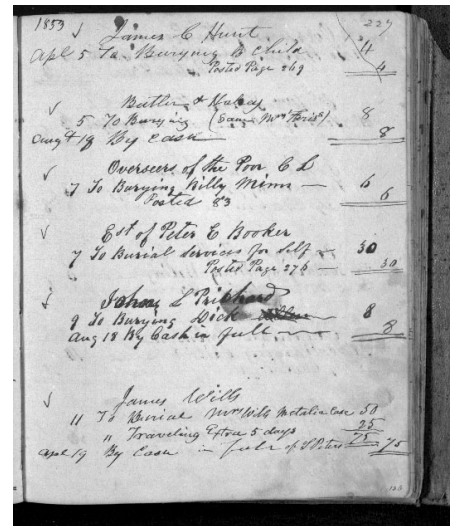 1853 229
James C Hunt
Apl 5 To Burying B Child 4
Posted Page 269 4
Butler &
5 To Burying (Saml Mrs ) 8
Aug 18 By Cash 8
Overseers of the Poor C L
7 To Burying Milly Mims 6
Posted 83 6
Est of Peter E Booker
7 To Burial Services for Self 30
Posted Page 276 30
John L Prichard
9 To Burying Dick 8
Aug 18 By Cash in full 8
James Wills
11 To Burial Mrs Wills Metalic Case 50
" Traveling Extra 5 days 25
Apl 19 By Cash in full of 75 75